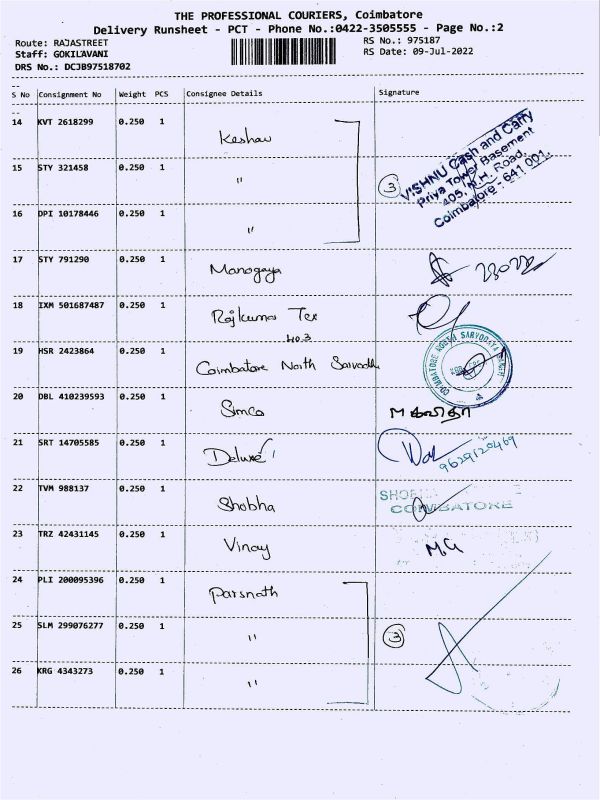 THE PROFESSIONAL COURIERS, Coimbatore
Delivery Runsheet - PCT - Phone No.:0422-3505555 - Page No.:2
Route: RAJASTREET
RS No.: 975187
Staff: GOKILAVANI
RS Date: 09-Jul-2022
DRS No.: DCJB97518702
--
S No Consignment No Weight PCS Consignee Details Signature
--
14 KVT 2618299 0.250 1 Keshav
15 STY 321458 0.250 1 "
3
VISHNU Cash and Carry
Priya Tower Basement
405, N.H. Road,
Coimbatore - 641 001.
16 DPI 10178446 0.250 1 "
17 STY 791290 0.250 1 Manogaya
18 IXM 501687487 0.250 1 Rajkumar Tex
403
19 HSR 2423864 0.250 1 Coimbatore North Sarvodh
COIMBATORE NORTH SARVODAYA
20 DBL 410239593 0.250 1 Simco M கவிதா
21 SRT 14705585 0.250 1 Deluxe 9629120469
22 TVM 988137 0.250 1 Shobha
COIMBATORE
23 TRZ 42431145 0.250 1 Vinay M.G
24 PLI 200095396 0.250 1 Parsnath
25 SLM 299076277 0.250 1 " 3
26 KRG 4343273 0.250 1 "